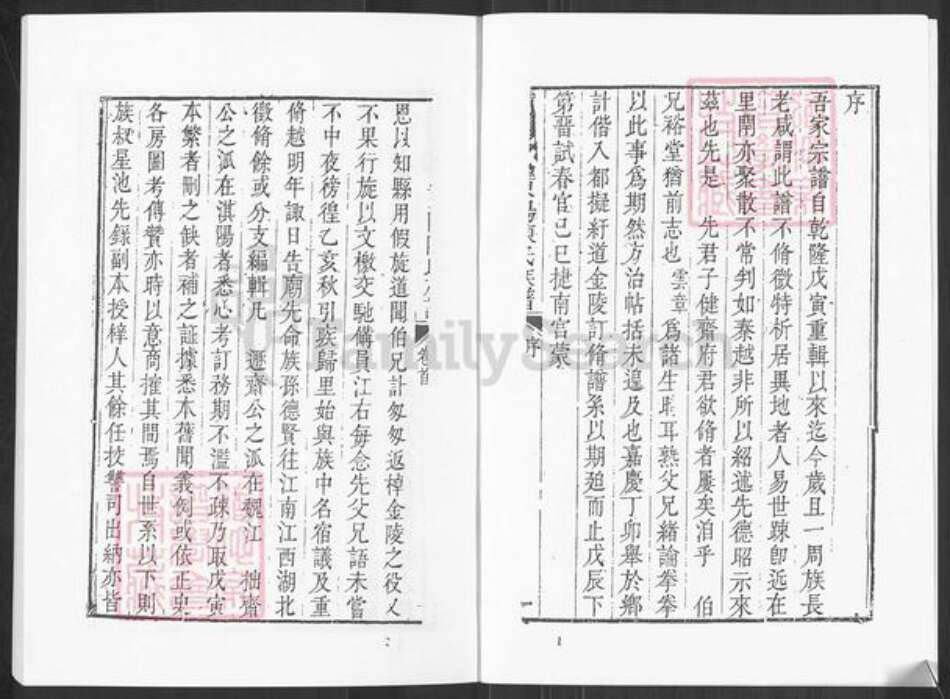 序
吾家宗譜自乾隆戊寅重輯以來迄今歲且一周族長
老咸謂此譜不脩微特析居異地者人易世踈卽近在
里閈亦聚散不常判如秦越非所以紹述先德昭示來
茲也先是 先君子健齋府君欲脩者屢矣洎乎 伯
兄裕堂猶前志也 雲章 爲諸生時耳熟父兄緒論拳拳
以此事爲期然方治帖括未遑及也嘉慶丁卯舉於鄉
計偕入都擬紆道金陵訂脩譜系以期廹而止戊辰下
第晉試春官己巳捷南宮蒙
族譜
序
恩以知縣用假旋道聞伯兄計匆匆返棹金陵之役又
不果行旋以文檄交馳備員江右每念先父兄語未嘗
不中夜徬徨乙亥秋引疾歸里始與族中名宿議及重
脩越明年諏日告廟先命族孫德賢往江南江西湖北
徵脩餘或分支編輯凡 遯齋公之派在 江 拙齋
公之派在淇陽者悉心考訂務期不濫不踈乃取戊寅
本繁者刪之缺者補之証據悉本舊聞義例或依正史
各房圖考傳贊亦時以意商搉其間焉自世系以下則
族叔星池先錄副本授梓人其餘任挍讐司出納亦皆
卷首
FamilySearch